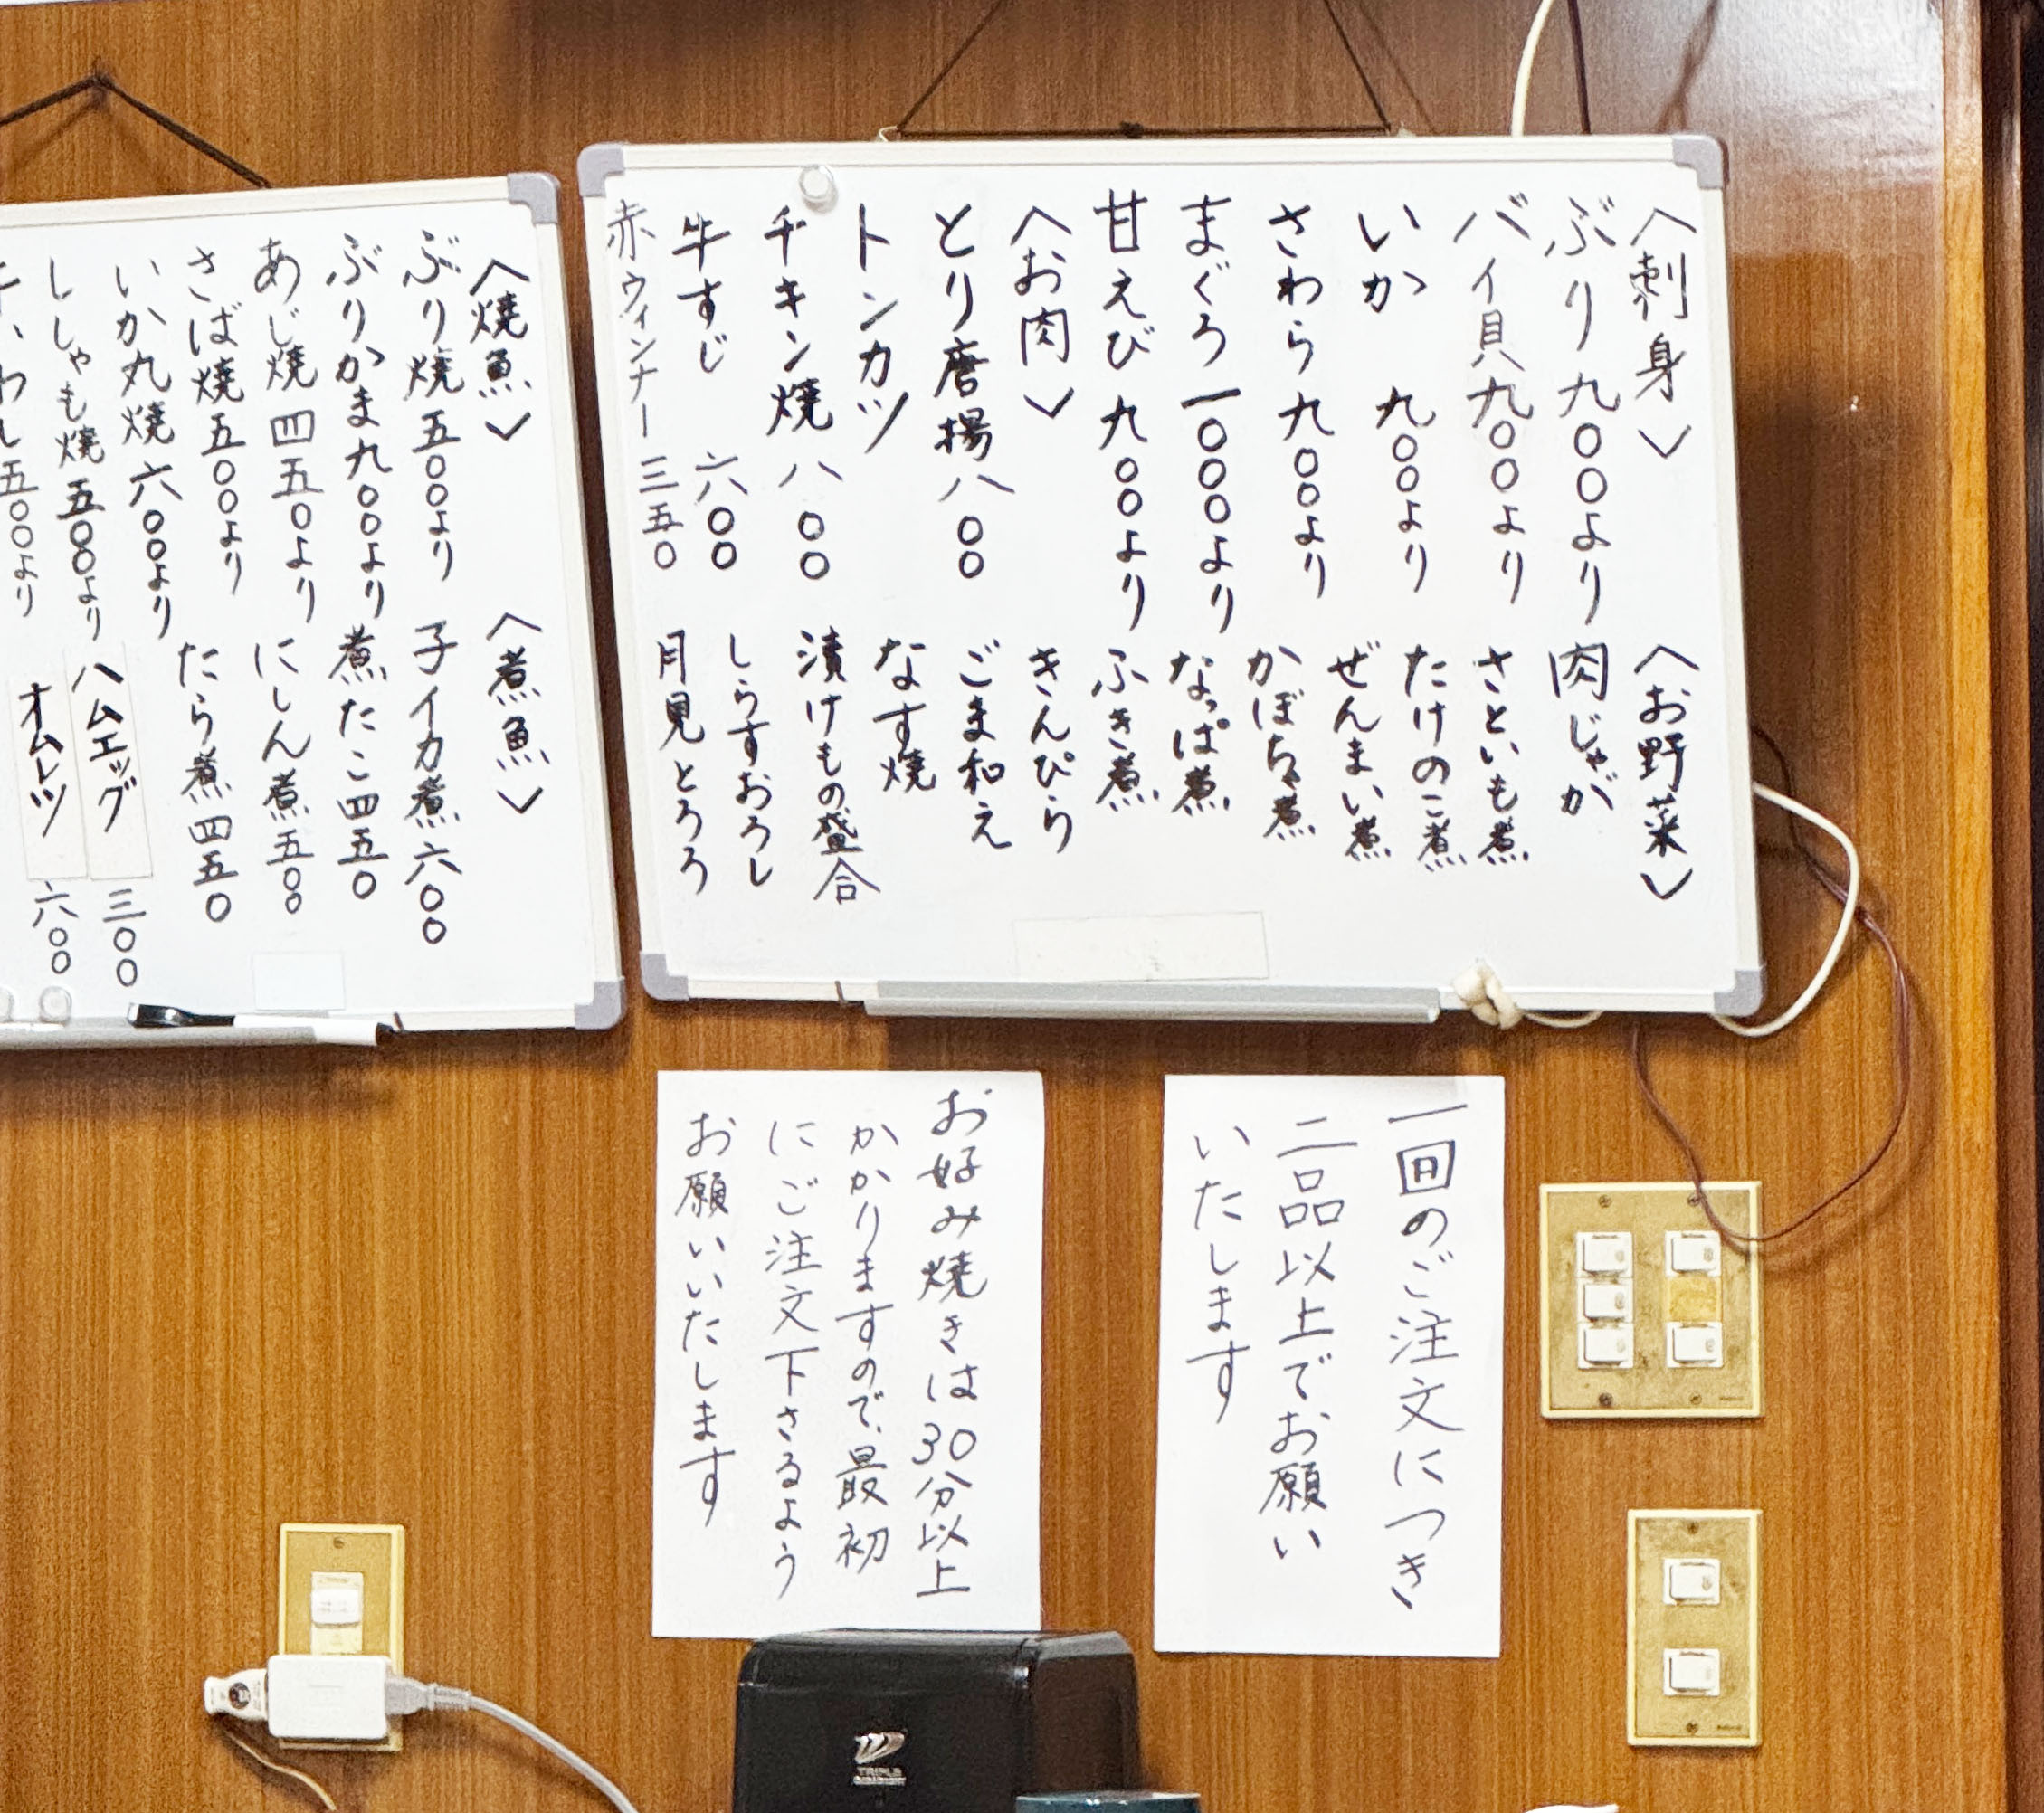 〈刺身〉
ぶり九〇〇より
バイ貝九〇〇より
いか 九〇〇より
さわら九〇〇より
まぐろ一〇〇〇より
甘えび九〇〇より
〈お肉〉
とり唐揚八〇〇
トンカツ
チキン焼 八〇〇
牛すじ 六〇〇
赤ウィンナー 三五〇
〈お野菜〉
肉じゃが
さといも煮
たけのこ煮
ぜんまい煮
かぼちゃ煮
なっぱ煮
ふき煮
きんぴら
ごま和え
なす焼
漬けもの盛合
しらすおろし
月見とろろ
〈焼魚〉
ぶり焼五〇〇より
ぶりかま九〇〇より
あじ焼四五〇より
さば焼五〇〇より
いか丸焼六〇〇より
ししゃも焼五〇〇より
いわし五〇〇より
〈煮魚〉
子イカ煮六〇〇
煮たこ四五〇
にしん煮五〇〇
たら煮四五〇
ハムエッグ 三〇〇
オムレツ 六〇〇
一回のご注文につき
二品以上でお願い
いたします
お好み焼きは30分以上
かかりますので、最初
にご注文下さるよう
お願いいたします
TRIPLE